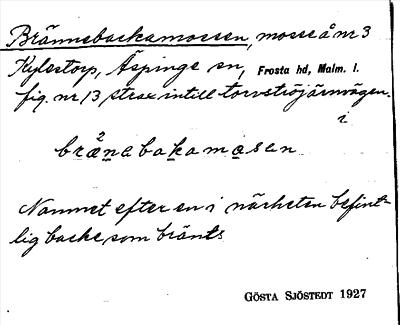 Brännebackamossen, mosse å nr 3
Kylestorp, Äspinge sn, Frosta hd, Malm. l.
fig. nr 13 strax intill torvströjärnvägen.
i
2
bræ̱nabaka̱mo̱san
Namnet efter en i närheten befint-
lig backe, som bränts
GÖSTA SJÖSTEDT 1927